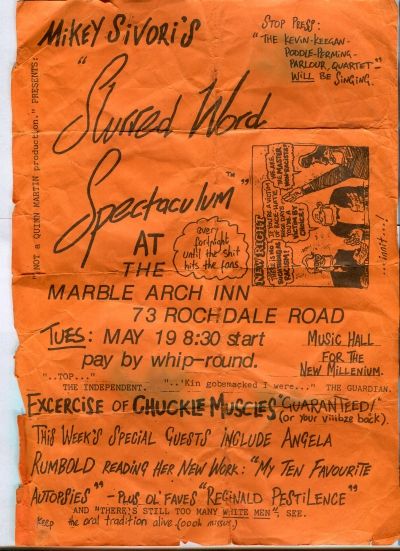 MIKEY SIVORI'S
STOP PRESS:
"THE KEVIN-KEEGAN-
POODLE-PERMING-
PARLOUR, QUARTET"
WILL BE SINGING.
"NOT A QUINN MARTIN production." PRESENTS:
"Slurred Word
Spectaculum"™
every
fortnight
until the shit
hits the fans.
NEW RIGHT
...innit...!
AT
THE
MARBLE ARCH INN
73 ROCHDALE ROAD
TUES: MAY 19 8:30 start
pay by whip-round.
MUSIC HALL
FOR THE
NEW MILLENIUM.
"..TOP..."
THE INDEPENDENT.
"..'Kin gobsmacked I were..." THE GUARDIAN.
EXCERCISE OF CHUCKLE MUSCLES "GUARANTEED!"
(or your villbze back).
THIS WEEK'S SPECIAL GUESTS INCLUDE ANGELA
RUMBOLD READING HER NEW WORK: "MY TEN FAVOURITE
AUTOPSIES" - PLUS OL' FAVES "REGINALD PESTILENCE"
AND "THERE'S STILL TOO MANY WHITE MEN", SEE.
Keep the oral tradition alive. (oooh missus.)